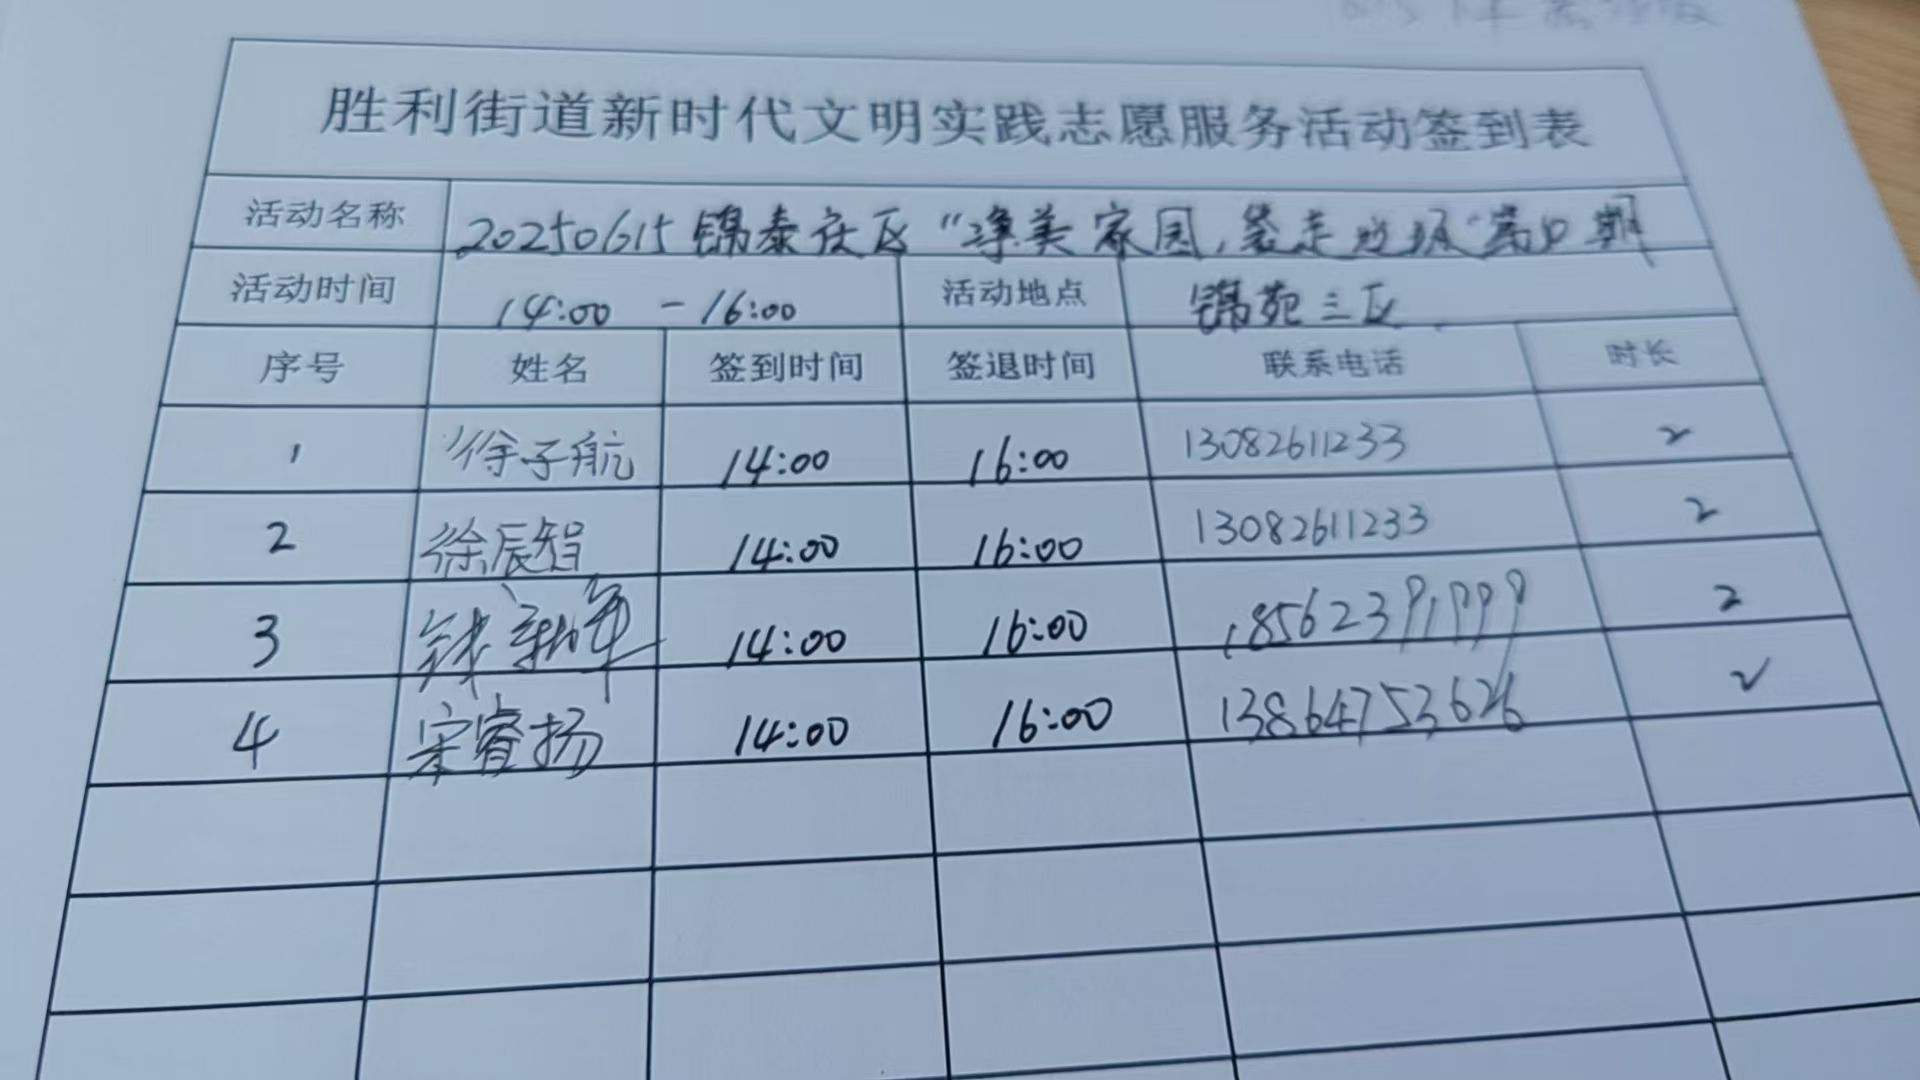 胜利街道新时代文明实践志愿服务活动签到表
活动名称 20250615 锦泰社区“净美家园,袋走垃圾”第四期
活动时间 14:00 - 16:00 活动地点 锦苑三区
序号 姓名 签到时间 签退时间 联系电话 时长
1 徐子航 14:00 16:00 13082611233 2
2 徐辰智 14:00 16:00 13082611233 2
3 14:00 16:00 18562391999 2
4 宋睿扬 14:00 16:00 13864753626 2